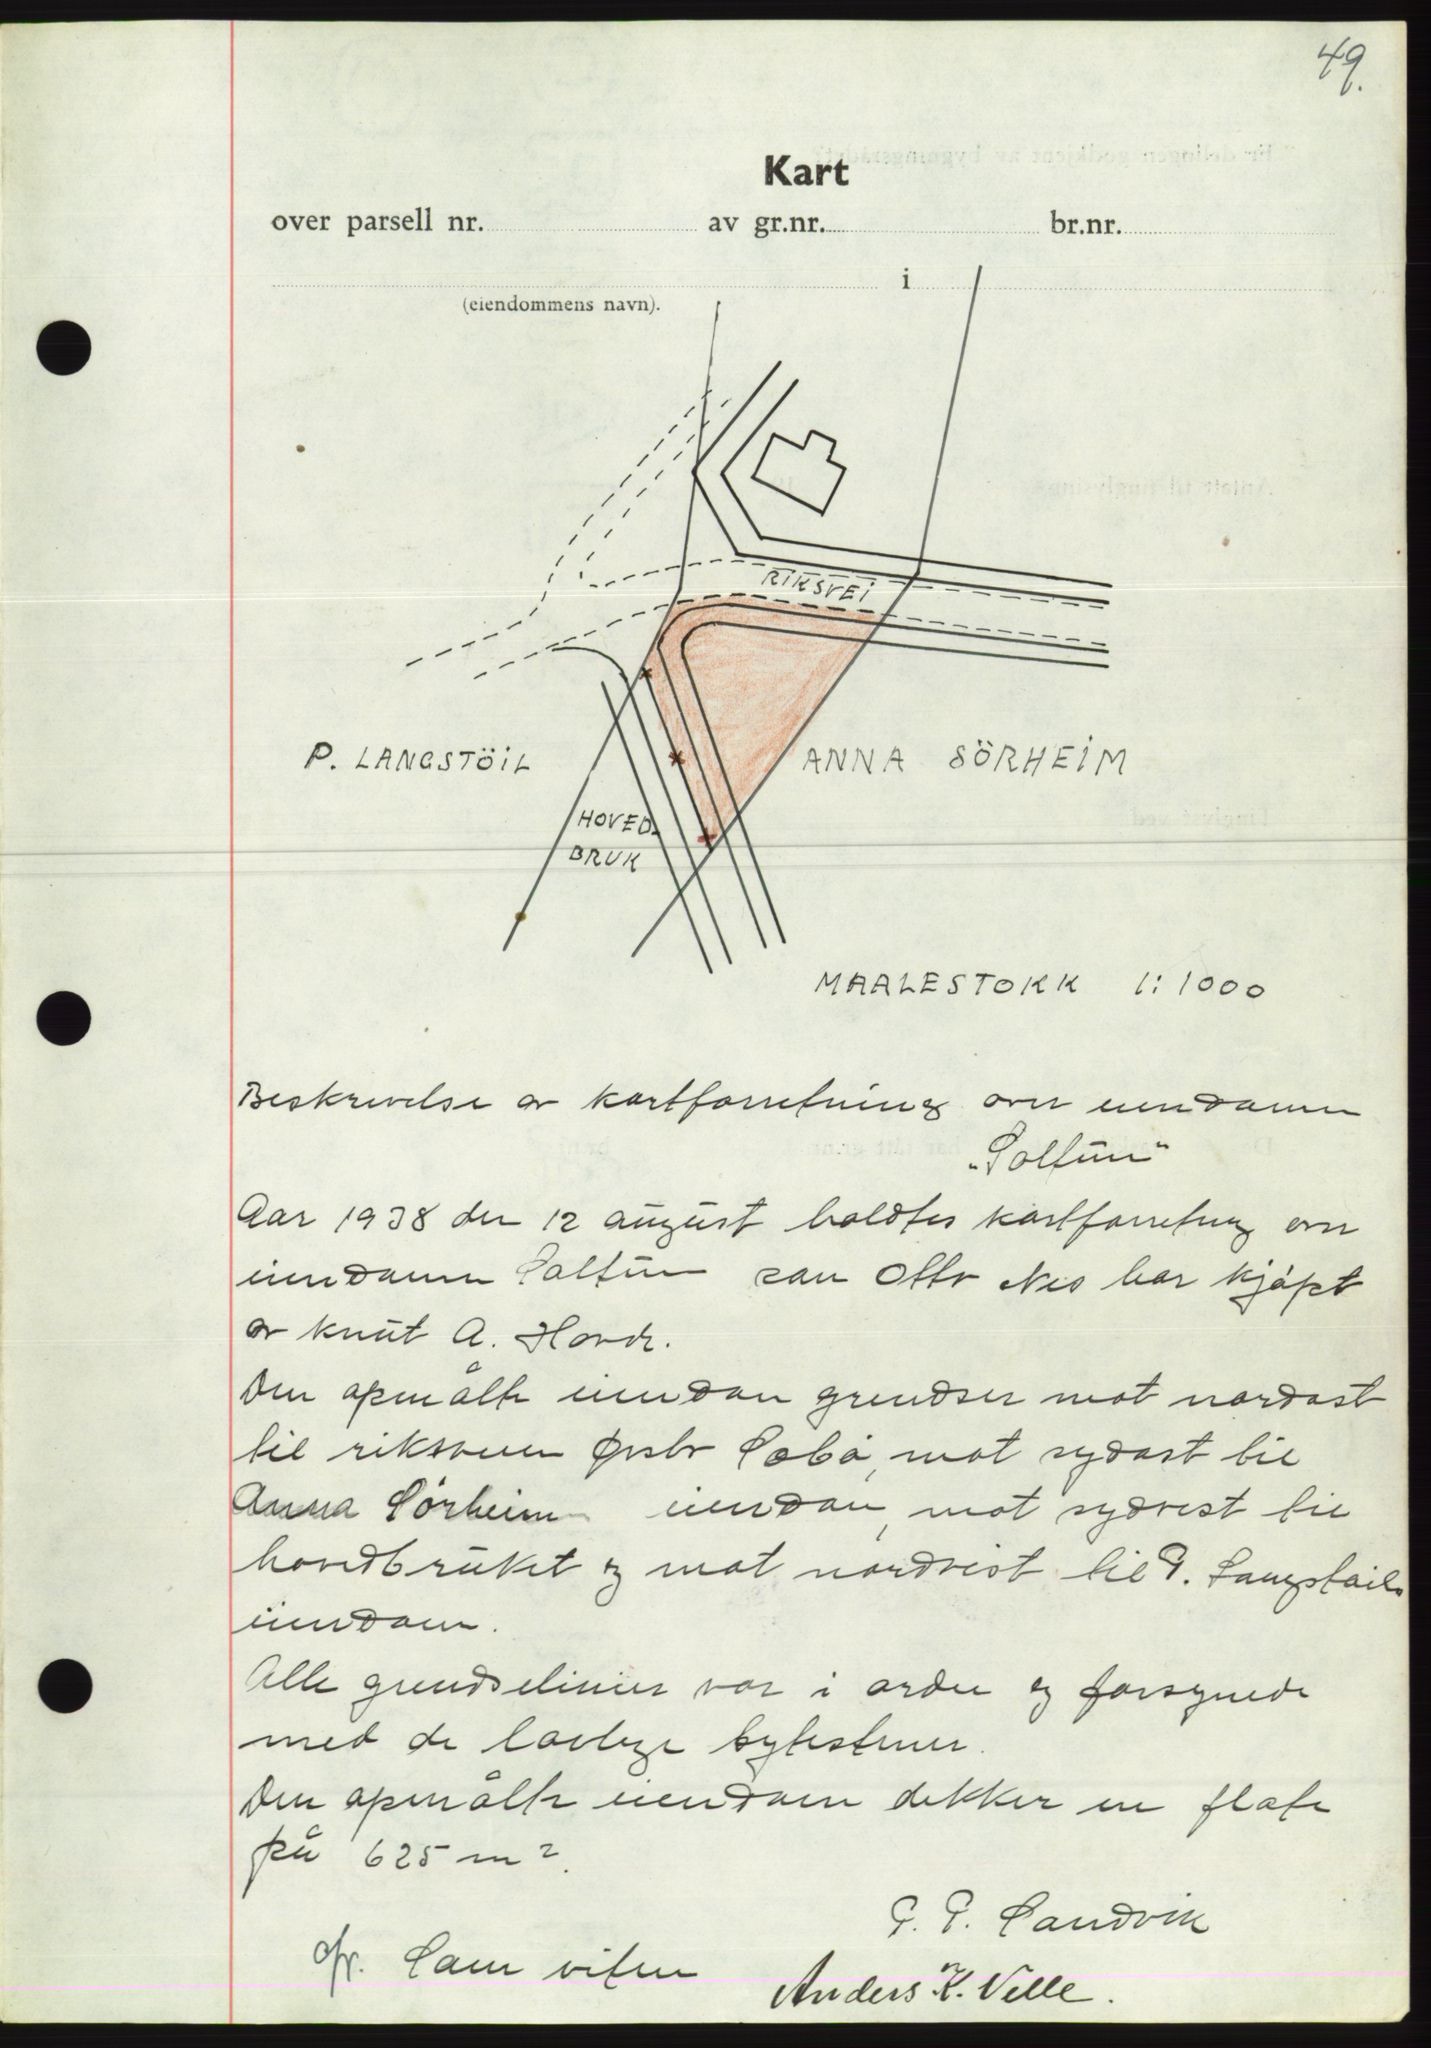 49.
Kart
over parsell nr. av gr.nr. br.nr.
i
(eiendommens navn).
RIKSVEI
P. LANGSTÖIL
ANNA SÖRHEIM
HOVED-
BRUK
MAALESTOKK 1:1000
Beskrivelse av kartforretning over eiendomen
"Soltun"
Aar 1938 den 12 august holdtes kartforretning over
eiendomen Soltun som Otto Nes har kjöpt
av Knut A. Hovde.
Den opmålte eiendom grendser mot nordost
til riksveien Ørsta Sæbö, mot sydost til
Anna Sörheim eiendom, mot sydvest til
hovedbruket og mot nordvest til P. Langstöils
eiendom.
Alle grendselinier var i orden og forsynede
med de lovlige bytestener.
Den opmålte eiendom dekker en flate
på 625 m².
P. P. Sandvik
Som vitne
Anders K. Velle.